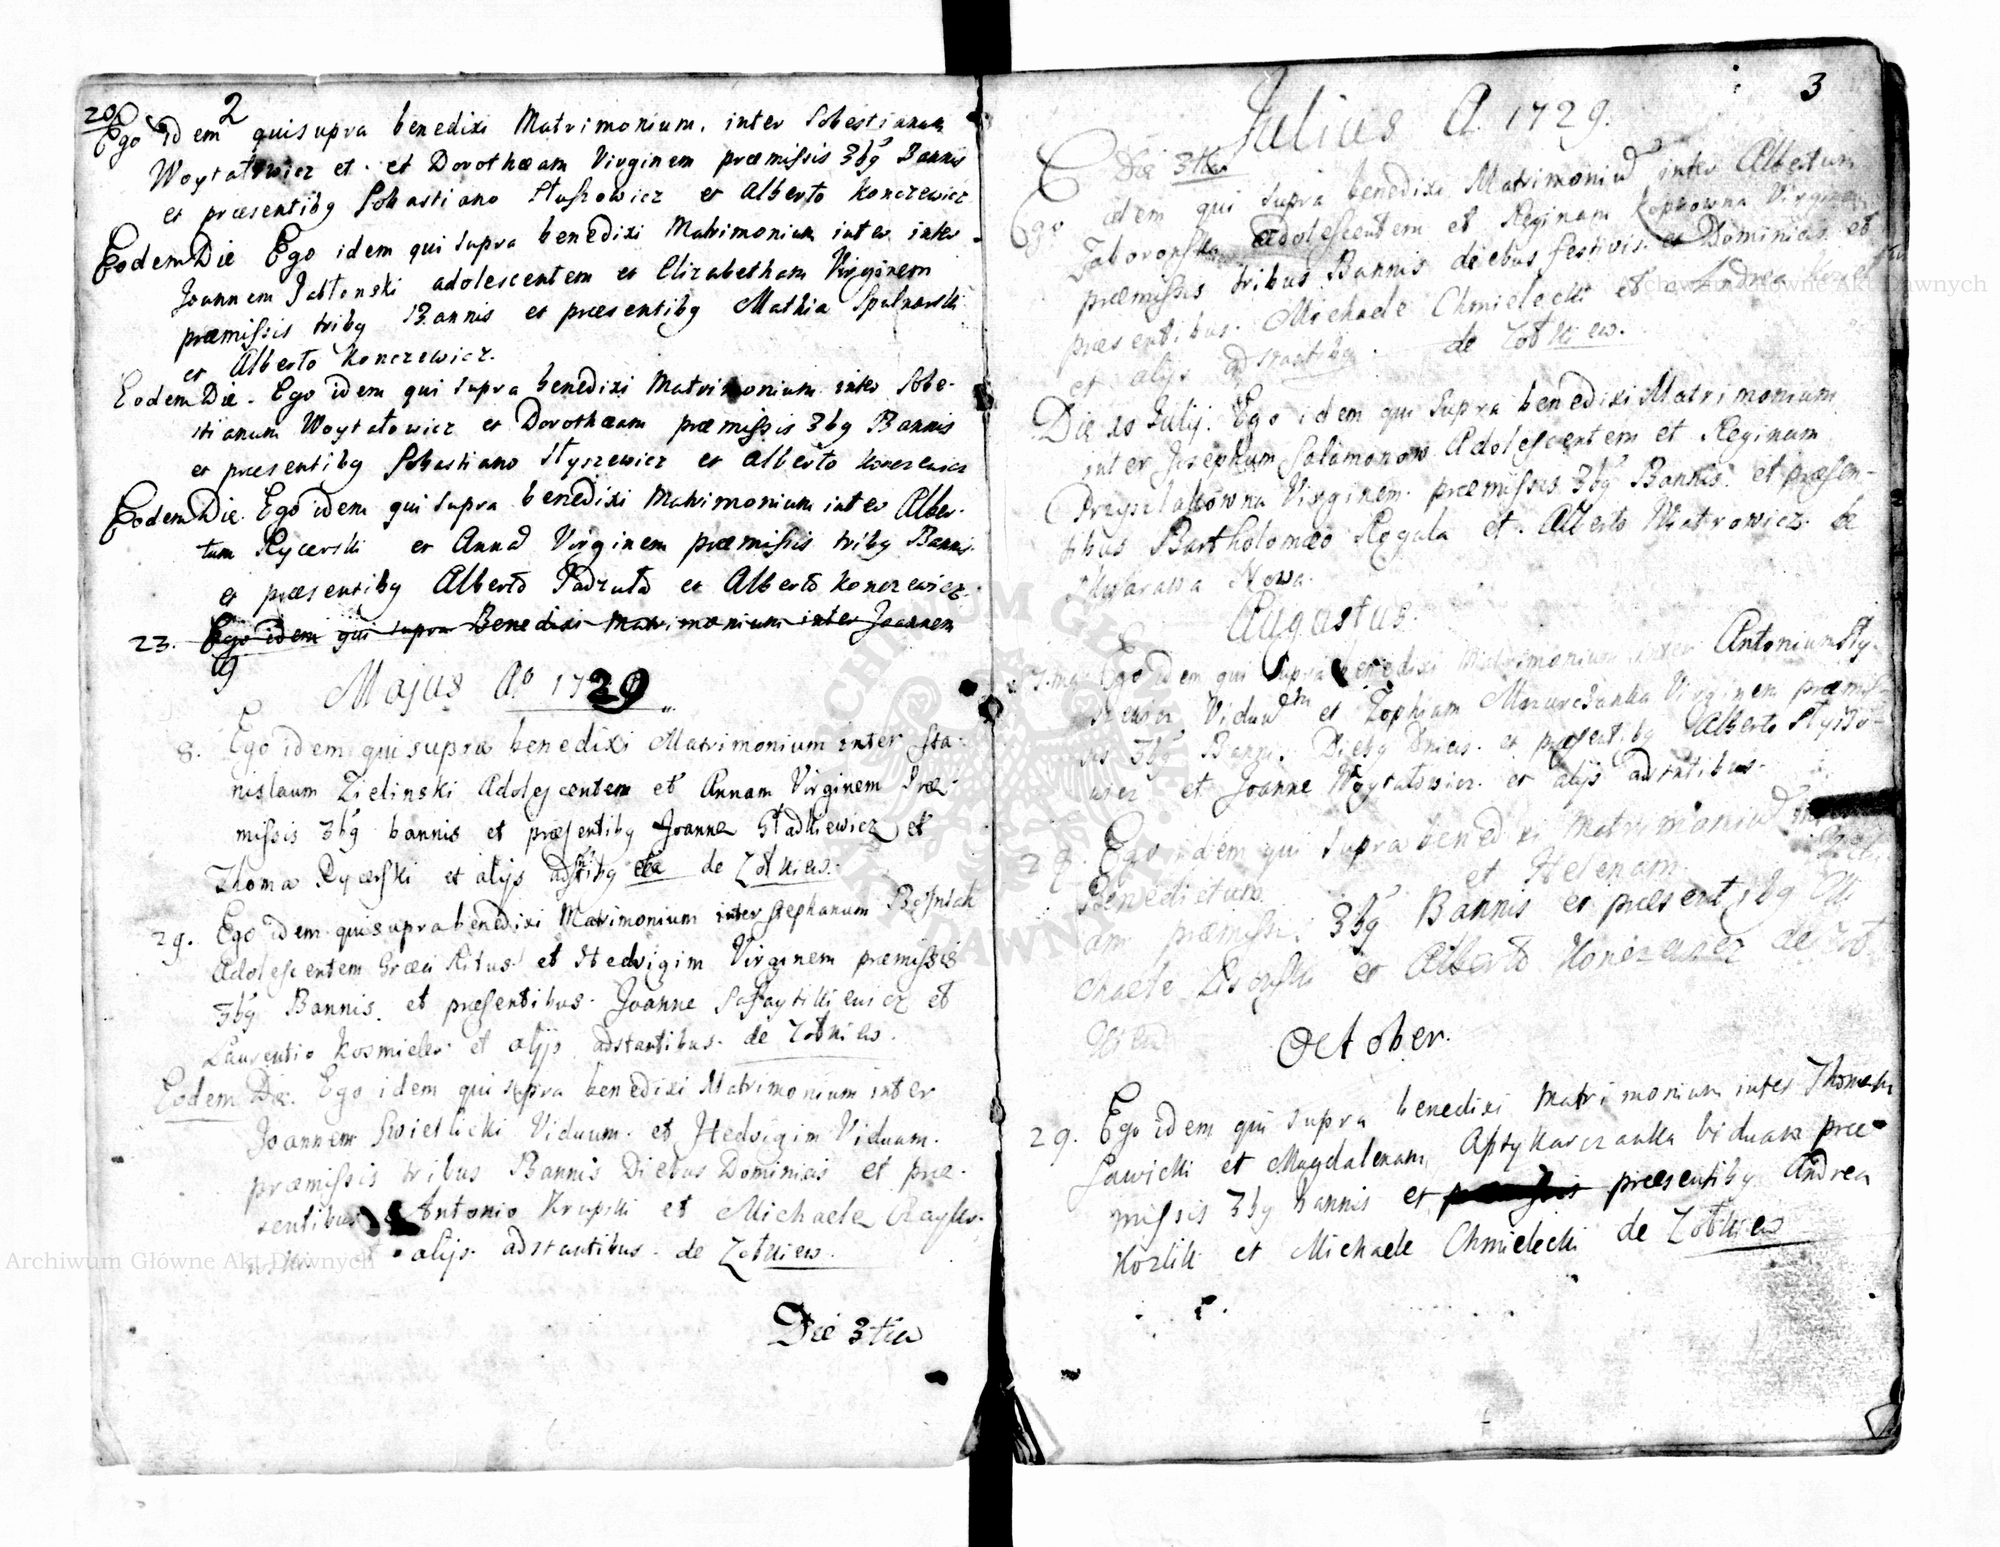 2
20
Ego idem quisupra benedixi Matrimonium. inter Sobestianum
Woytatowicz et. et Dorotheam Virginem præmissis 3bg Bannis
et præsentibg Sobastiano Stuszowicz et Alberto Konczewicz
Eodem Die Ego idem qui supra benedixi Matrimonium inter inter
Joannem Jablonski adolescentem et Elizabetham Virginem
præmissis tribg Bannis et præsentibg Mathia Spalnarski
et Alberto Konczewicz.
Eodem Die. Ego idem qui supra benedixi Matrimonium inter Sobe-
stianum Woytatowicz et Dorotheam præmissis 3bg Bannis
et præsentibg Sobastiano Styszewicz et Alberto Konczewicz
Eodem Die. Ego idem qui supra benedixi Matrimonium inter Alber-
tum Rycerski et Annã Virginem præmissis tribg Bannis
et præsentibg Alberto et Alberto Konczewicz.
23. Ego idem qui supra Benedixi Matrimonium inter Joannem
Majus Aº 1729
8. Ego idem qui supra benedixi Matrimonium inter Sta-
nislaum Zielinski Adolescentem et Annam Virginem Præ-
missis 3bg bannis et præsentibg Joanne Stadkiewicz et
Thoma Rycerski et alijs adstibg de Zołkiew.
29. Ego idem quisupra benedixi Matrimonium inter Stephanum
Adolescentem Græci Ritus et Hedvigim Virginem præmissis
3bg Bannis. et præsentibus. Joanne et
Laurentio Kosmider et alijs adstantibus. de Zołkiew.
Eodem Die. Ego idem qui supra benedixi Matrimonium inter
Joannem Swietlicki Viduum. et Hedvigim Viduam.
præmissis tribus Bannis Diebus Dominicis et præ-
sentibus Antonio Krupski et Michaele
alijs. adstantibus. de Zołkiew.
Die 3tia
3
Julius A. 1729.
Die 3tia
Ego idem qui supra benedixi Matrimoniũ inter Albertum
Jaworonski adolescentem et Reginam Virginem
præmissis tribus Bannis diebus festivis et Dominicis et
præsentibus. Michaele Chmielecki et Andrea
et alijs adstantibg. de Zołkiew.
Die 10 Julij. Ego idem qui supra benedixi Matrimonium
inter Josephum Salamonow Adolescentem et Reginam
Przyszlakowna Virginem. præmissis 3bg Bannis. et præsen-
tibus Bartholomæo Rogala et. Alberto Matrowicz. de
Nowa.
Augustus.
Ego idem qui supra benedixi Matrimonium inter Antonium Sty-
szewicz Viduum et Zophiam Virginem præmis-
sis 3bg Bannis. Diebg et præsentibg Alberto Styszo-
wicz et Joanne Woytatowicz. et alijs adstatibus.
28 Ego idem qui supra benedixi Matrimoniũ inter
Benedictum et Helenam
am præmissis 3bg Bannis et præsentibg Mi-
chaele et Alberto Konczewicz de Zoł-
kiew
October.
29. Ego idem qui supra benedixi Matrimonium inter Thomam
Sawicki et Magdalenam Aptykarczanka viduam præ-
missis 3bg bannis et præsentibg Andrea
Kozlik et Michaele Chmielecki de Zołkiew